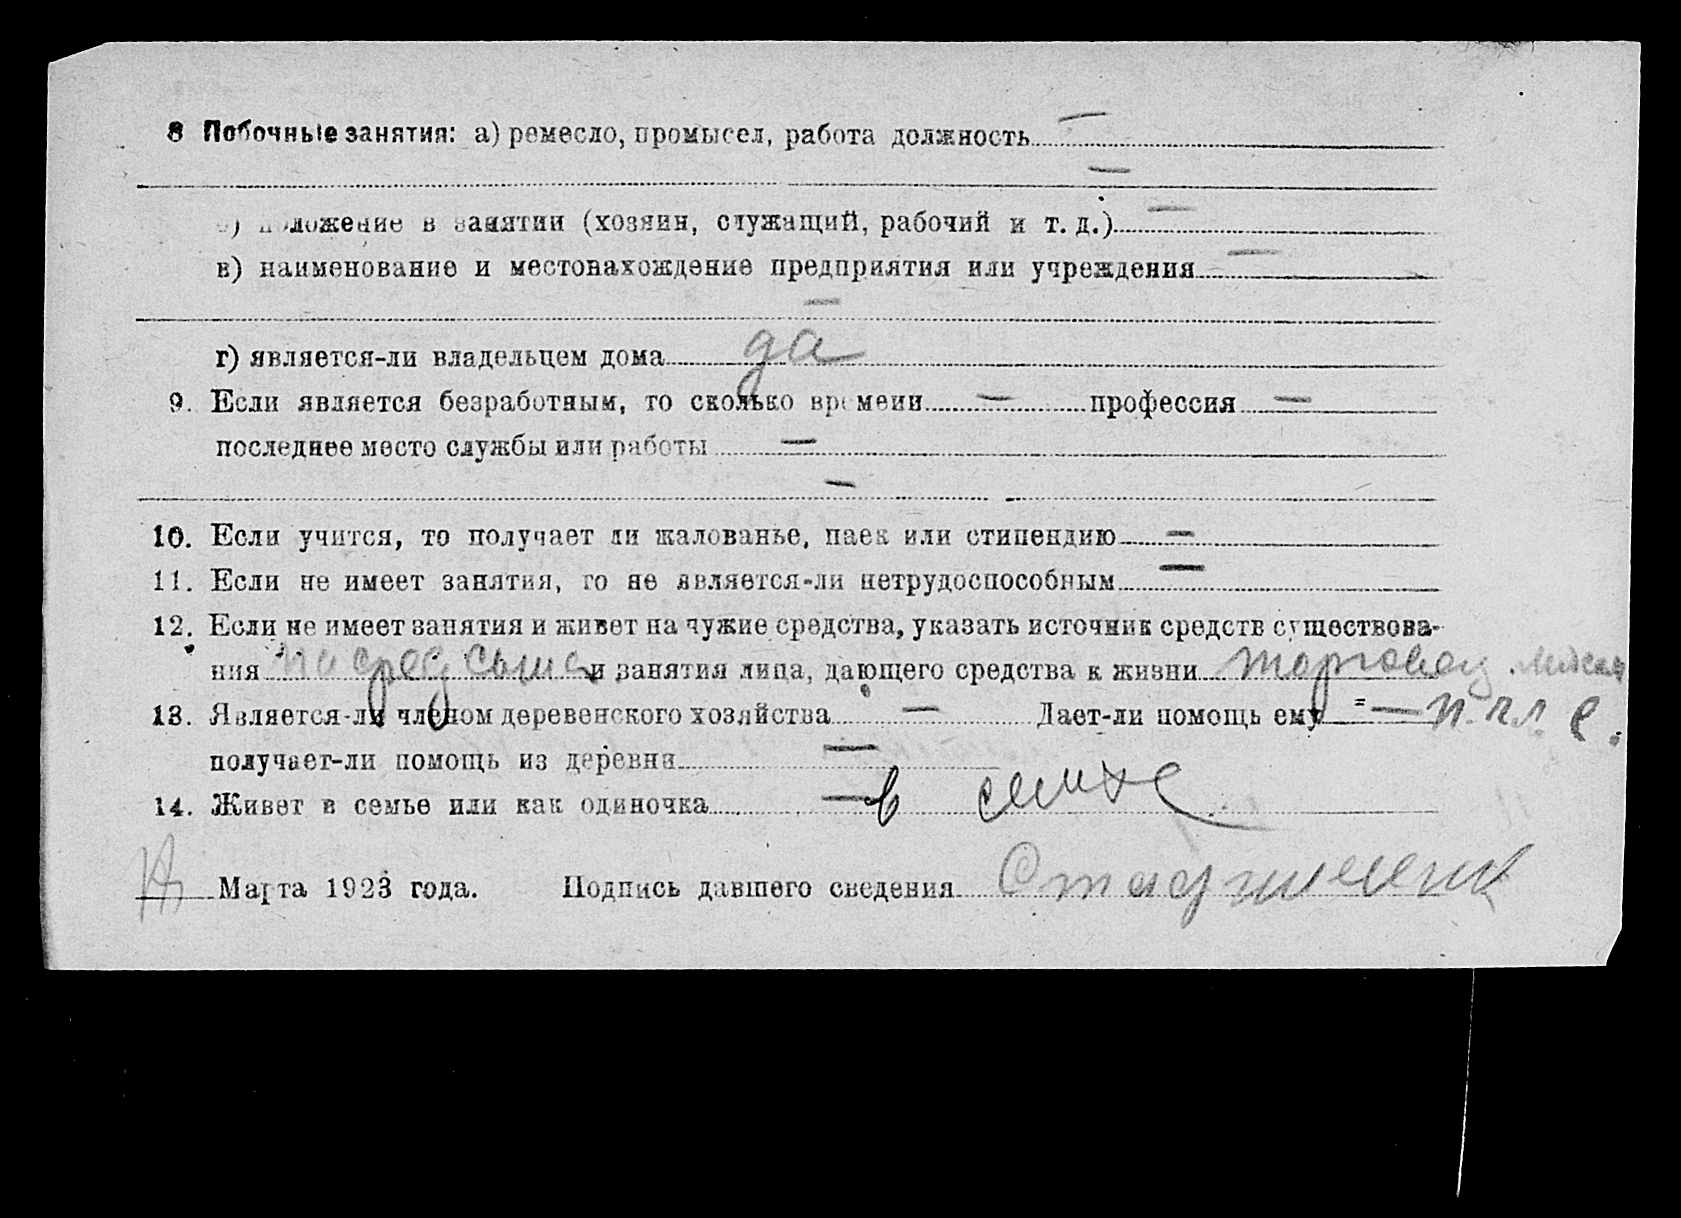 8 Побочные занятия: а) ремесло, промысел, работа должность —
—
б) положение в занятии (хозяин, служащий, рабочий и т. д.) —
в) наименование и местонахождение предприятия или учреждения —
—
г) является-ли владельцем дома да
9. Если является безработным, то сколько времени — профессия —
последнее место службы или работы —
—
10. Если учится, то получает ли жалованье, паек или стипендию —
11. Если не имеет занятия, то не является-ли нетрудоспособным —
12. Если не имеет занятия и живет на чужие средства, указать источник средств существова-
ния на сред сына и занятия лица, дающего средства к жизни торговец
13. Является-ли членом деревенского хозяйства — Дает-ли помощь ему —
получает-ли помощь из деревни —
14. Живет в семье или как одиночка — в семье
Марта 1923 года. Подпись давшего сведения